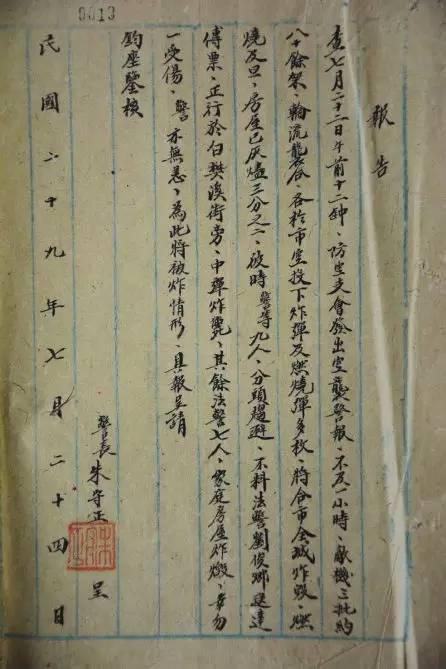 0013
報告
查七月二十二日午前十二鐘、防空支會發出空襲警報、不及一小時、敵機三批約
八十餘架、輪流襲合、各於市空投下炸彈及燃燒彈多枚、將合市全城炸毀、燃
燒及旦、房屋已灰燼三分之二、彼時警等九人、分頭趨避、不料法警劉俊鄉送達
傳票、正行於白樊溪街旁、中彈炸斃、其餘法警七人、家庭房屋炸燬、幸勿
一受傷、警亦無恙、為此將被炸情形、具報呈請
鈞座鑒核
警長朱守正呈
民國二十九年七月二十四日